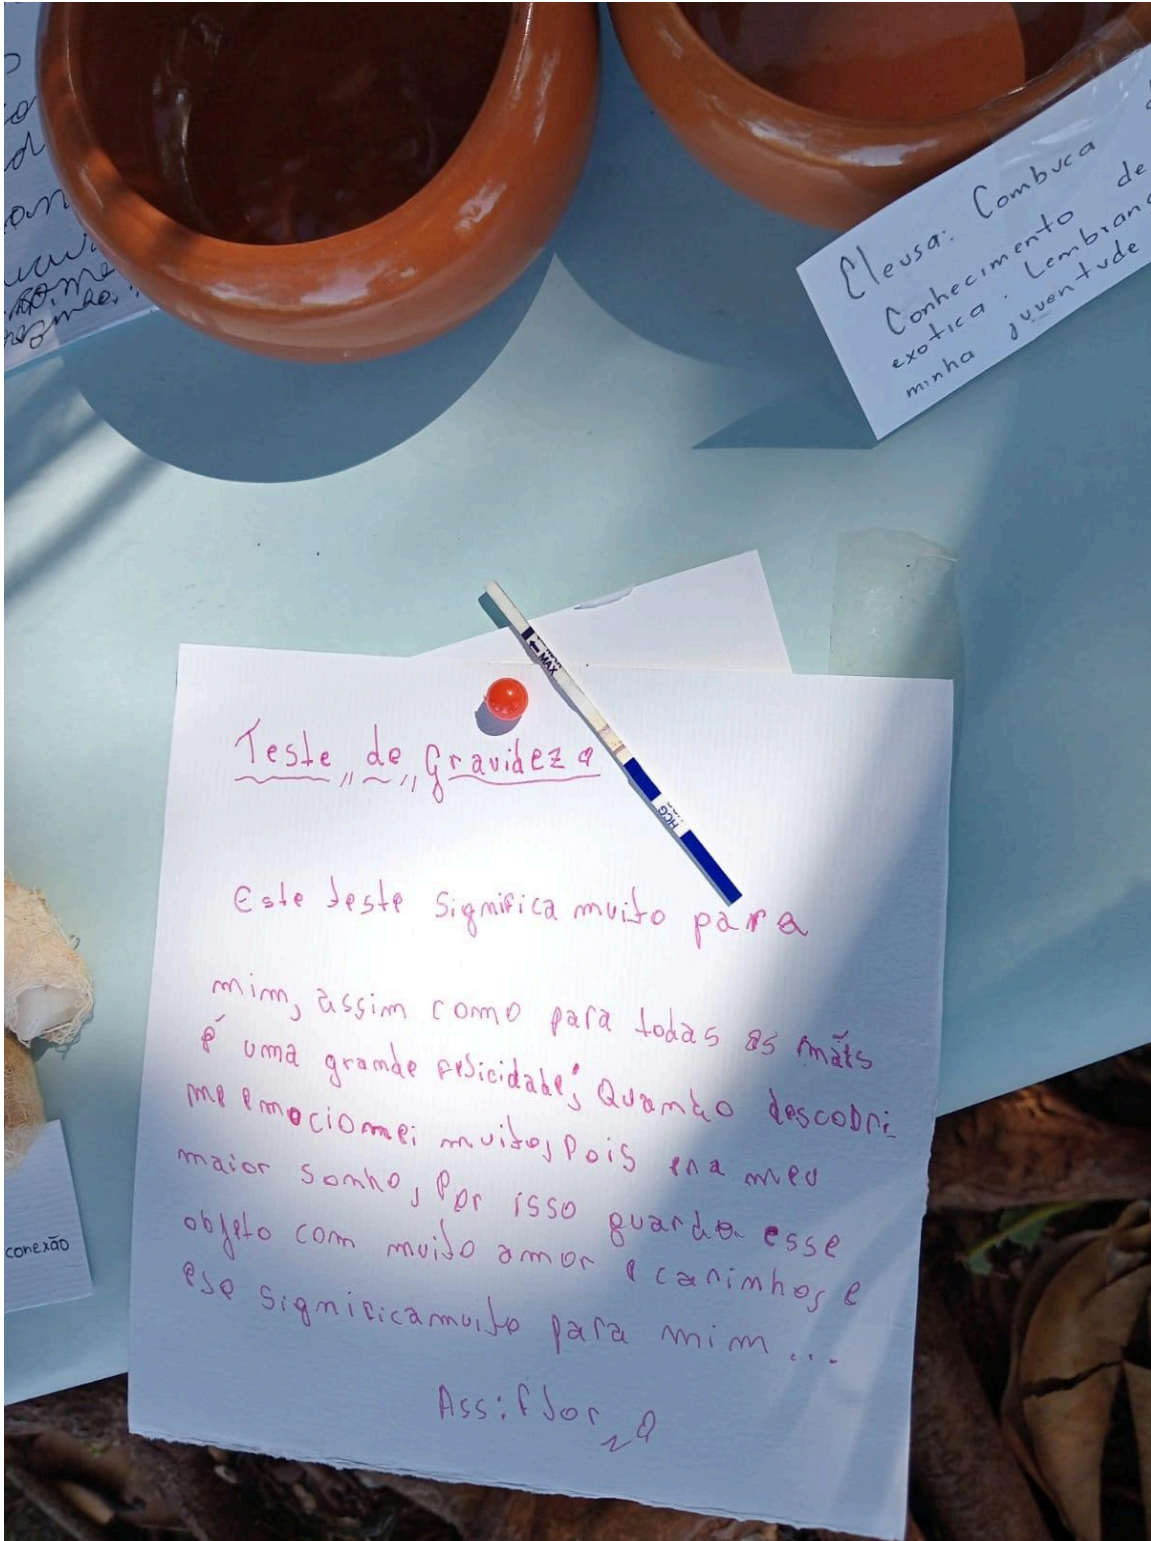 Eleusa: Combuca
Conhecimento de
exotica. Lembranç
minha juventude
MAX
HCG
Teste de Gravidez a
Este teste significa muito para
mim, assim como para todas as mães
é uma grande felicidade; Quando descobri
me emocionei muito, Pois era meu
maior sonho, Por isso guardo esse
objeto com muito amor e carinhos e
ese significa muito para mim...
Ass: flor
conexão